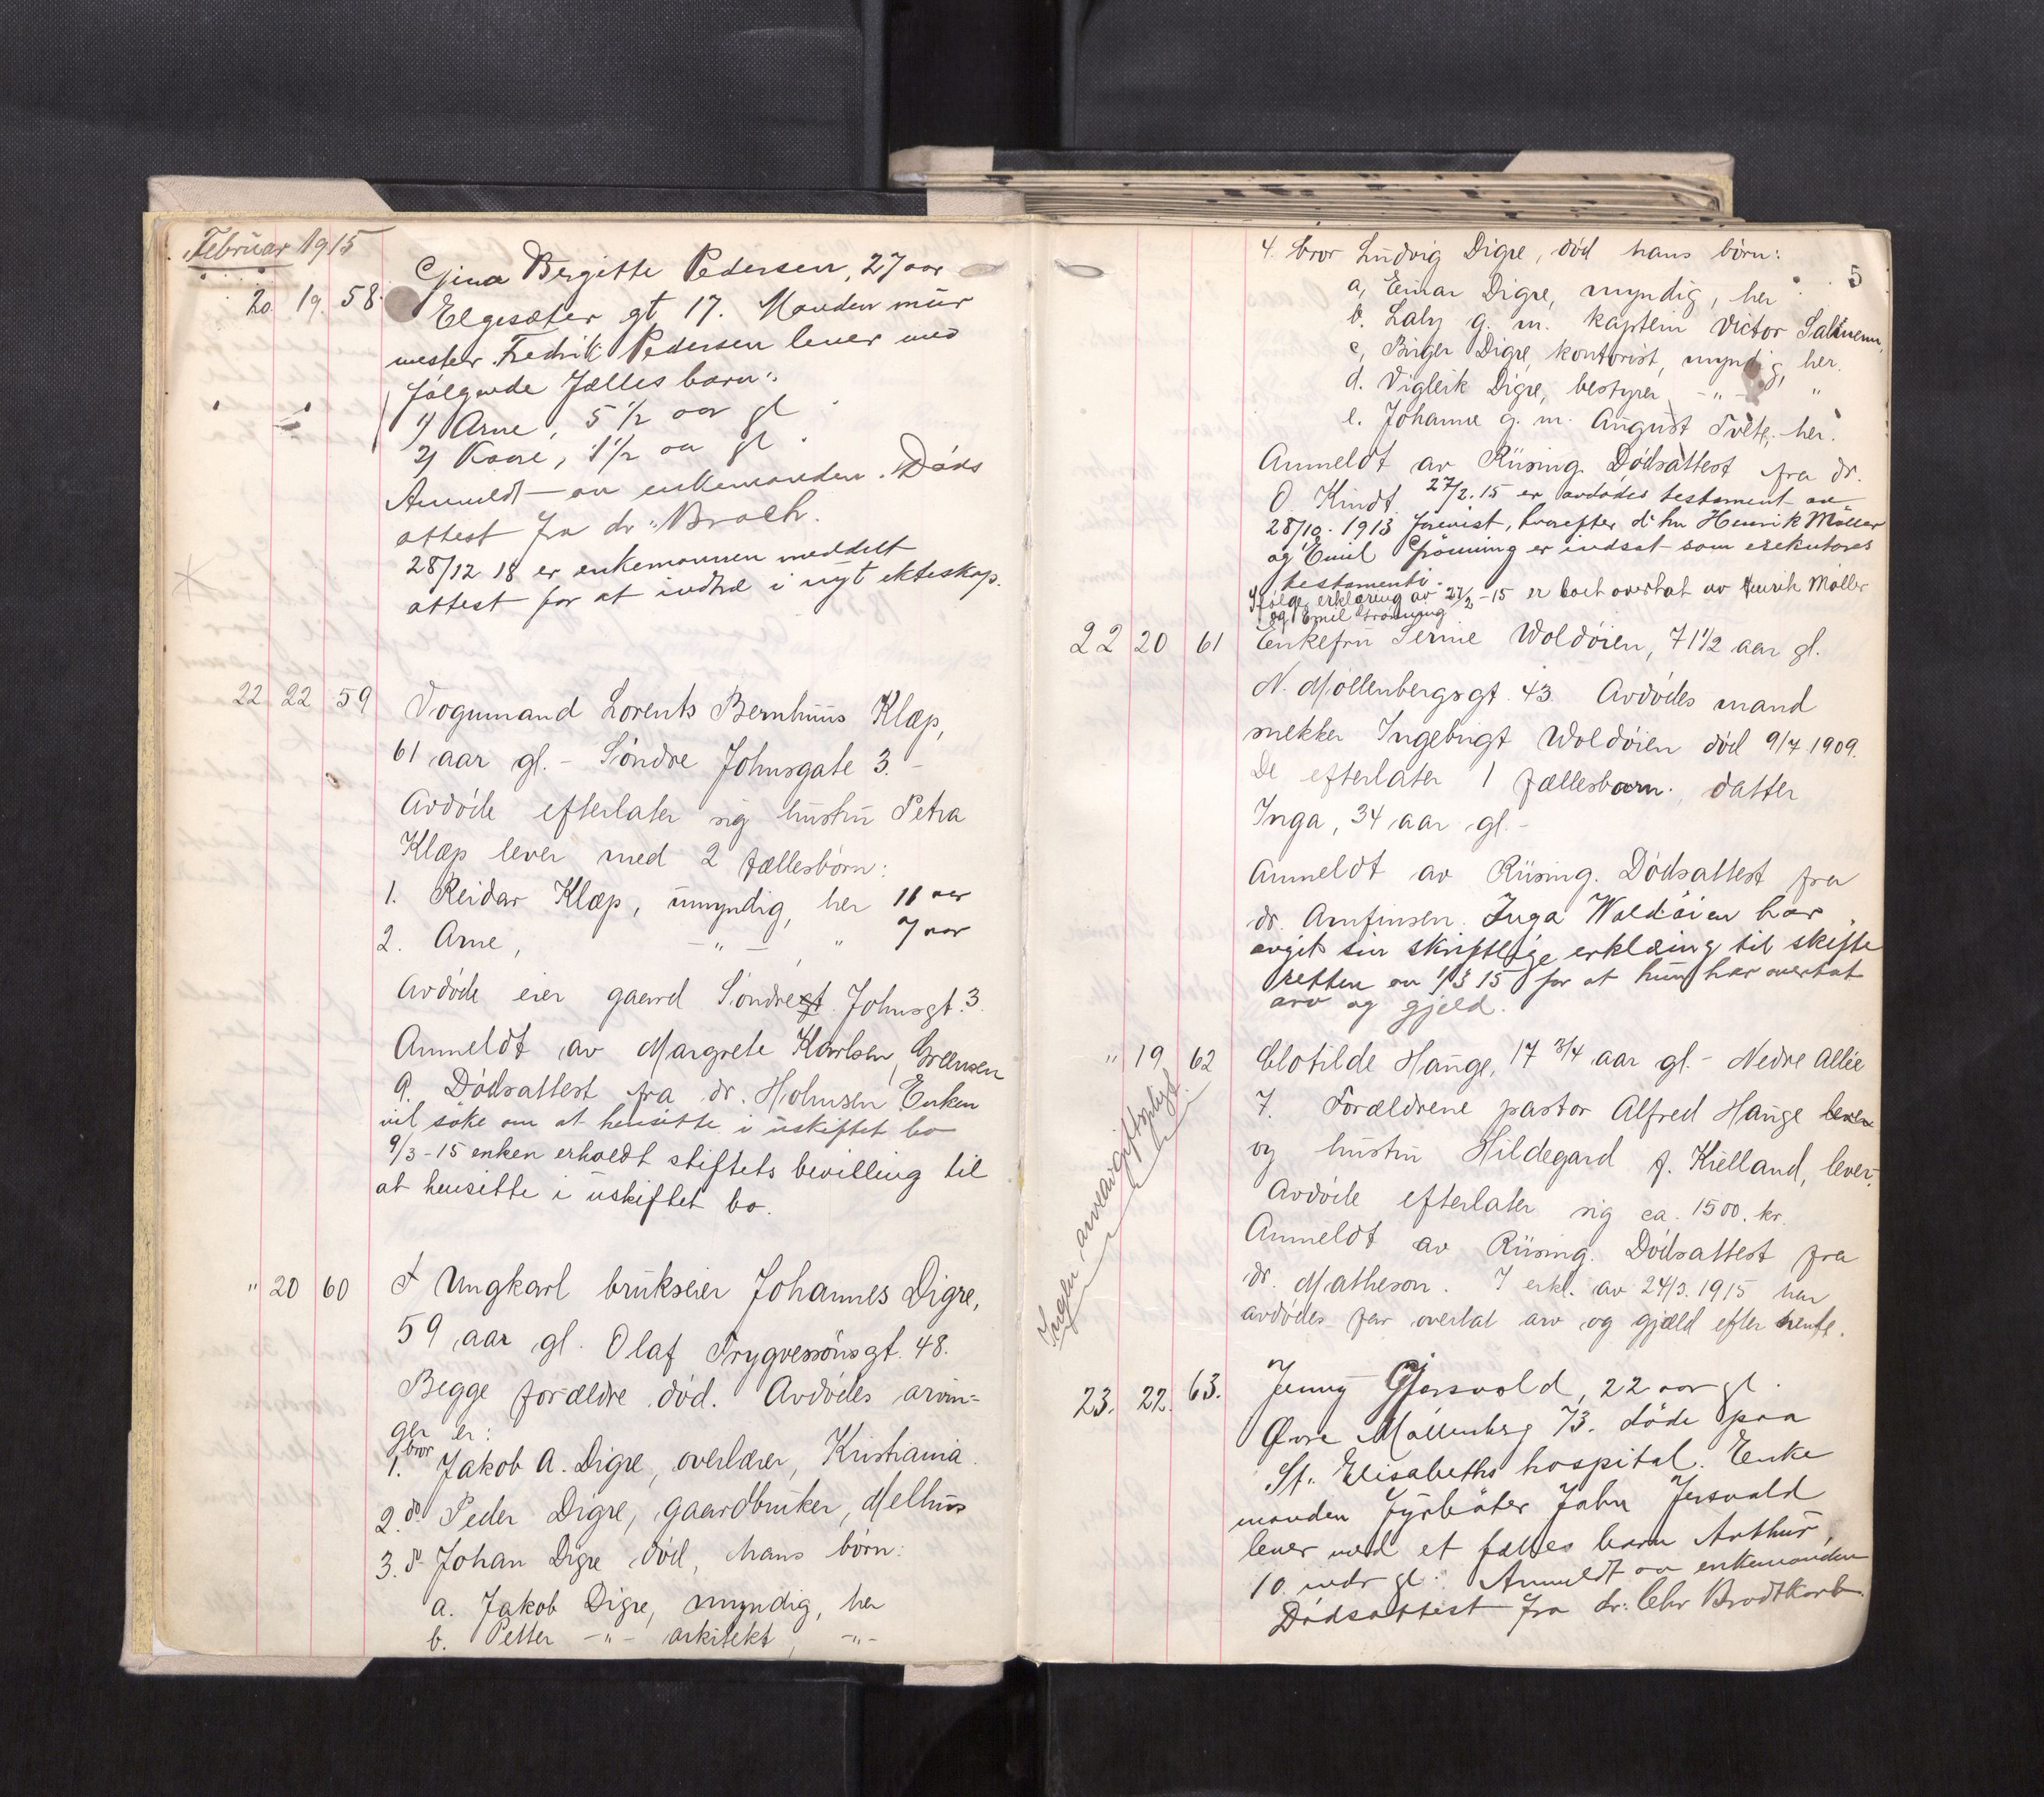 Februar 1915
20. 19. 58. Gina Bergitte Pedersen, 27 aar
Elgesæter gt 17. Manden mur
mester Fredrik Pedersen lever med
følgende fælles barn:
1) Arne, 5 1/2 aar gl
2) Kaare, 1 1/2 aar gl.
Anmeldt av enkemanden. Døds
attest fra dr. Broch.
28/12 18 er enkemannen meddelt
attest for at indtræ i nyt ekteskap.
22 22 59 Vognmand Lorents Bernhus Klæp,
61 aar gl. - Søndre Johnsgate 3. -
Avdøde efterlater sig hustru Petra
Klæp lever med 2 fællesbørn:
1. Reidar Klæp, umyndig, her 11 aar
2. Arne, - " - , " 7 aar
Avdøde eier gaard Søndregt. Johnsgt. 3.
Anmeldt av Margrete Karlsen, Grensen
9. Dødsattest fra dr. Holmsen Enken
vil søke om at hensitte i uskiftet bo
9/3-15 enken erholdt stiftets bevilling til
at hensitte i uskiftet bo.
" 20 60 Ungkarl brukseier Johannes Digre,
59 aar gl. Olaf Trygvessønsgt. 48.
Begge forældre død. Avdødes arvin-
ger er:
1. bror Jakob A. Digre, overlærer, Kristiania.
2. do Peder Digre, gaardbruker, Melhus
3. do Johan Digre død, hans børn:
a. Jakob Digre, myndig, her
b. Petter - " - arkitekt, - " -
5
4. bror Ludvig Digre, død hans børn:
a, Einar Digre, myndig, her
b. Laly g. m. kaptein Victor
c, Birger Digre, kontorist, myndig, her.
d. Vigleik Digre, bestyrer - " - "
e. Johanne g. m. August Tvete, her.
Anmeldt av Riising. Dødsattest fra dr.
O Kindt. 27/2. 15 er avdødes testament av
28/10. 1913 forevist, hvorefter d'hrr Henrik Møller
og Emil Grønning er indsat som exekutores
testamenti.
Ifølge erklæring av 27/2-15 er boet overtat av Henrik Møller
og Emil Grønning
22 20 61 Enkefru Serine Woldøien, 71 1/2 aar gl.
N. Møllenbergsgt. 43. Avdødes mand
snekker Ingebrigt Woldøien død 9/7. 1909.
De efterlater 1 fællesbarn, datter
Inga, 34 aar gl. -
Anmeldt av Riising. Dødsattest fra
dr. Arnfinsen. Inga Woldøien har
avgit sin skriftlige erklæring til skifte
retten av 1/3 15 for at hun har overtat
arv og gjeld.
" 19 62 Clotilde Hauge, 17 3/4 aar gl. - Nedre Allée
7. Forældrene pastor Alfred Hauge lever
og hustru Hildegard f. Kielland, lever.
Avdøde efterlater sig ca. 1500. kr.
Anmeldt av Riising. Dødsattest fra
dr. Matheson. I erkl. av 24/3. 1915 har
avdødes far overtat arv og gjæld efter hende.
Ingen arveavgiftspligt.
23. 22. 63. Jenny Gjersvold, 22 aar gl.
Øvre Møllenberg 73. døde paa
St. Elisabeths hospital. Enke
manden fyrbøter John Jersvold
lever med et fælles barn Arthur,
10 mdr gl. Anmeldt av enkemanden
Dødsattest fra dr. Chr Brodtkorb.